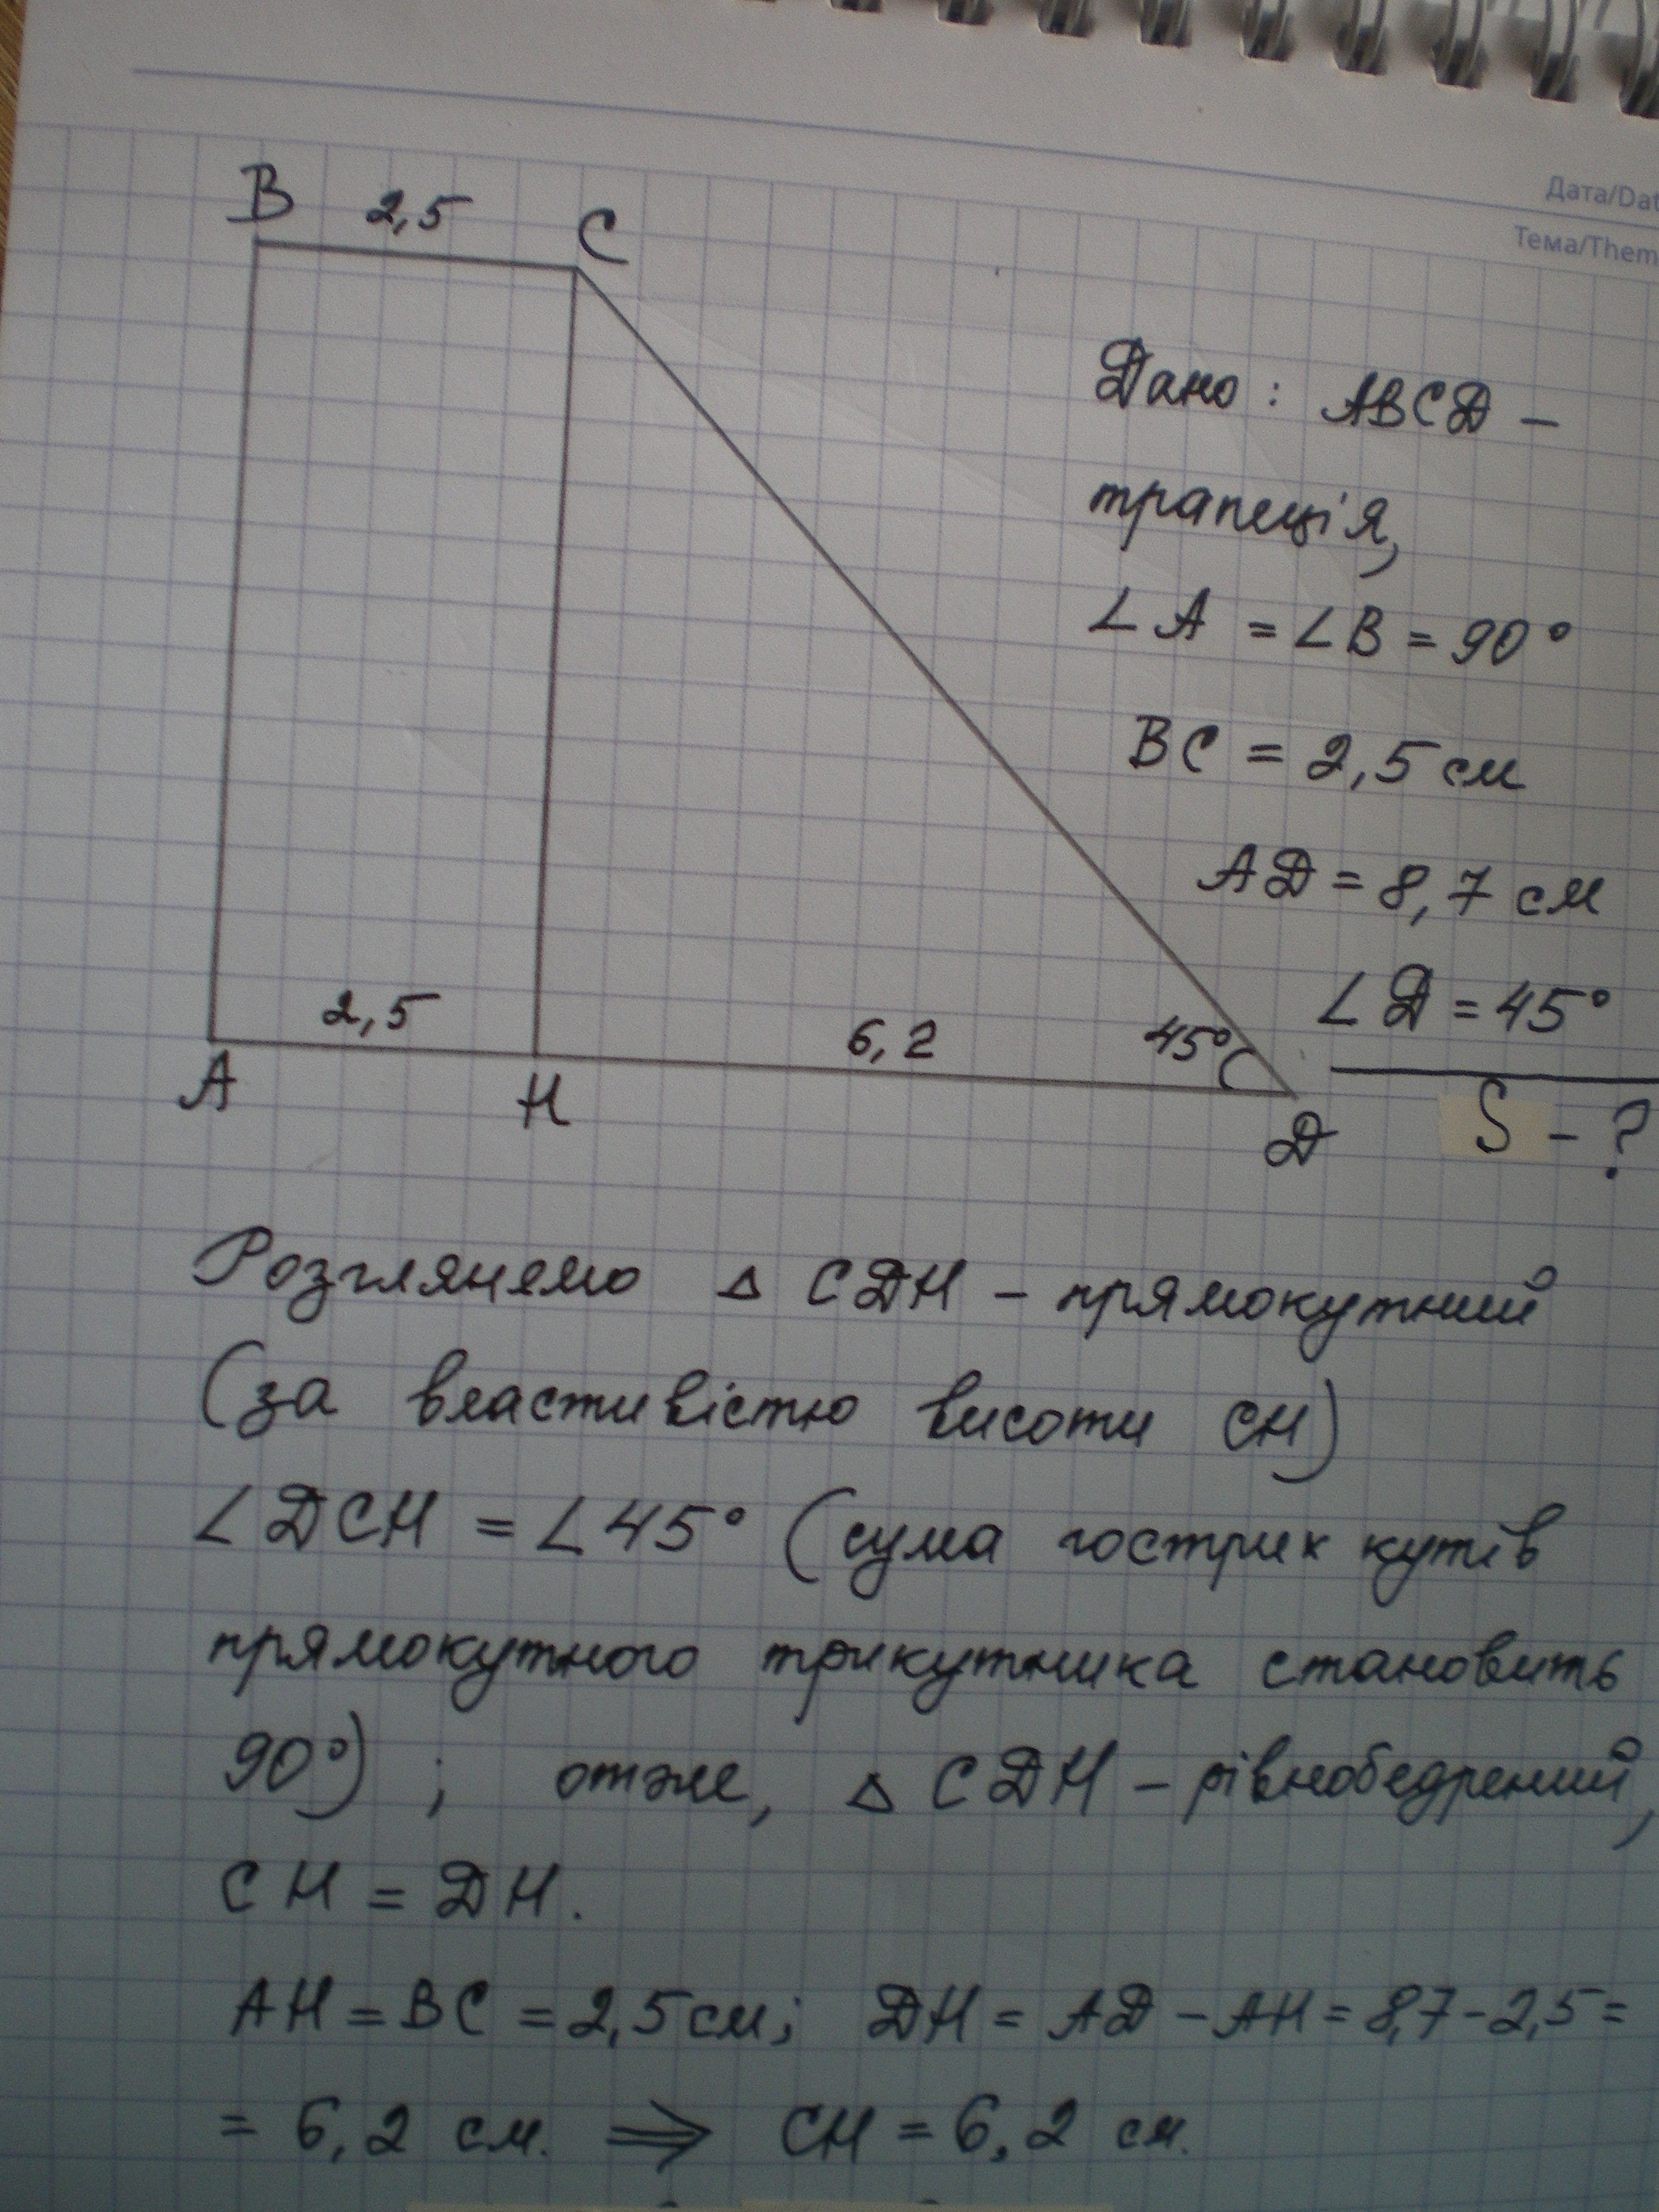 Дата/Dat
Тема/Them
B 2,5 C
Дано: ABCD –
трапеція,
∠A = ∠B = 90°
BC = 2,5 см
AD = 8,7 см
∠D = 45°
S – ?
2,5 6,2 45°
A H D
Розглянемо △ CDH – прямокутний
(за властивістю висоти CH)
∠DCH = ∠45° (сума гострих кутів
прямокутного трикутника становить
90°) ; отже, △ CDH – рівнобедрений,
CH = DH.
AH = BC = 2,5 см; DH = AD – AH = 8,7 – 2,5 =
= 6,2 см. ⇒ CH = 6,2 см.